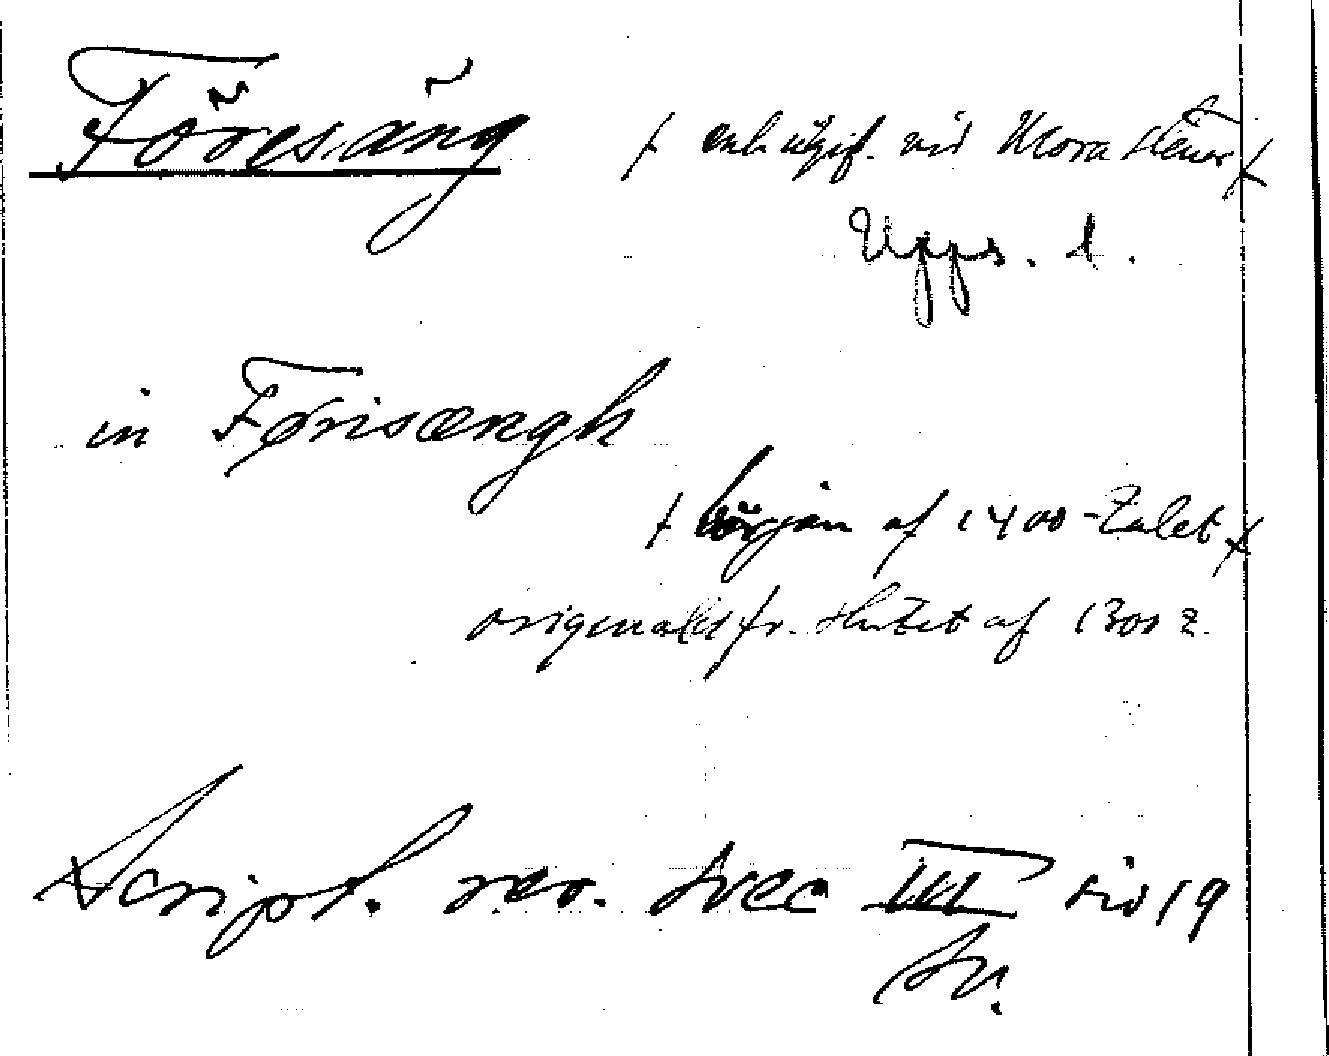 Föresäng ⨍ enl. utgif. vid Mora stenar ⨍
Upps. l.
in Førisængh
⨍ början af 1400-talet ⨍
originalet fr. slutet af 1300 t.
Script. rer. svec III sid 19
Sv.